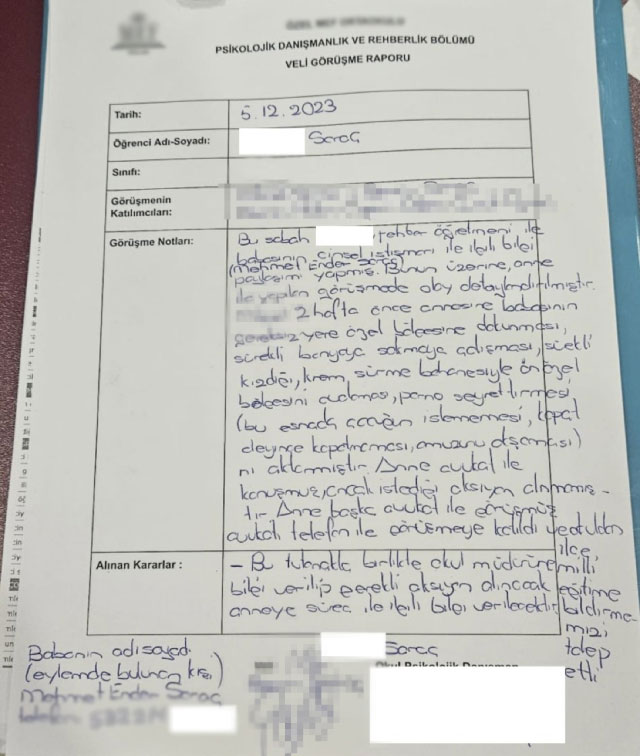 PSİKOLOJİK DANIŞMANLIK VE REHBERLİK BÖLÜMÜ
VELİ GÖRÜŞME RAPORU
Tarih: 5.12.2023
Öğrenci Adı-Soyadı: Saraç
Sınıfı:
Görüşmenin Katılımcıları:
Görüşme Notları:
Bu sabah rehber öğretmeni ile
babasının cinsel istismarı ile ilgili bilgi
(Mehmet Ender Saraç)
paylaşımı yapmış. Bunun üzerine, anne
ile yapılan görüşmede olay detaylandırılmıştır.
2 hafta önce annesine babasının
gereksiz yere özel bölgesine dokunması,
sürekli banyoya sokmaya çalışması, sürekli
kızdığı, krem sürme bahanesiyle ön özel
bölgesini, porno seyrettirmesi
(bu esnada çocuğun istememesi, kapat
deyince kapatmaması,)
nı aktarmıştır. Anne avukat ile
konuşmuş, ancak istediği aksiyon alınmamış-
tır. Anne başka avukat ile görüşmüş
avukat telefon ile görüşmeye katıldı ve
ilçe
milli
eğitime
bildirme-
mizi
talep
etti
Alınan Kararlar :
- Bu tutanakla birlikte okul müdürüne
bilgi verilip gerekli aksiyon alınacak
anneye süreç ile ilgili bilgi verilecektir.
Babanın adı soyadı
(eylemde bulunan kişi)
Mehmet Ender Saraç
telefon
Saraç